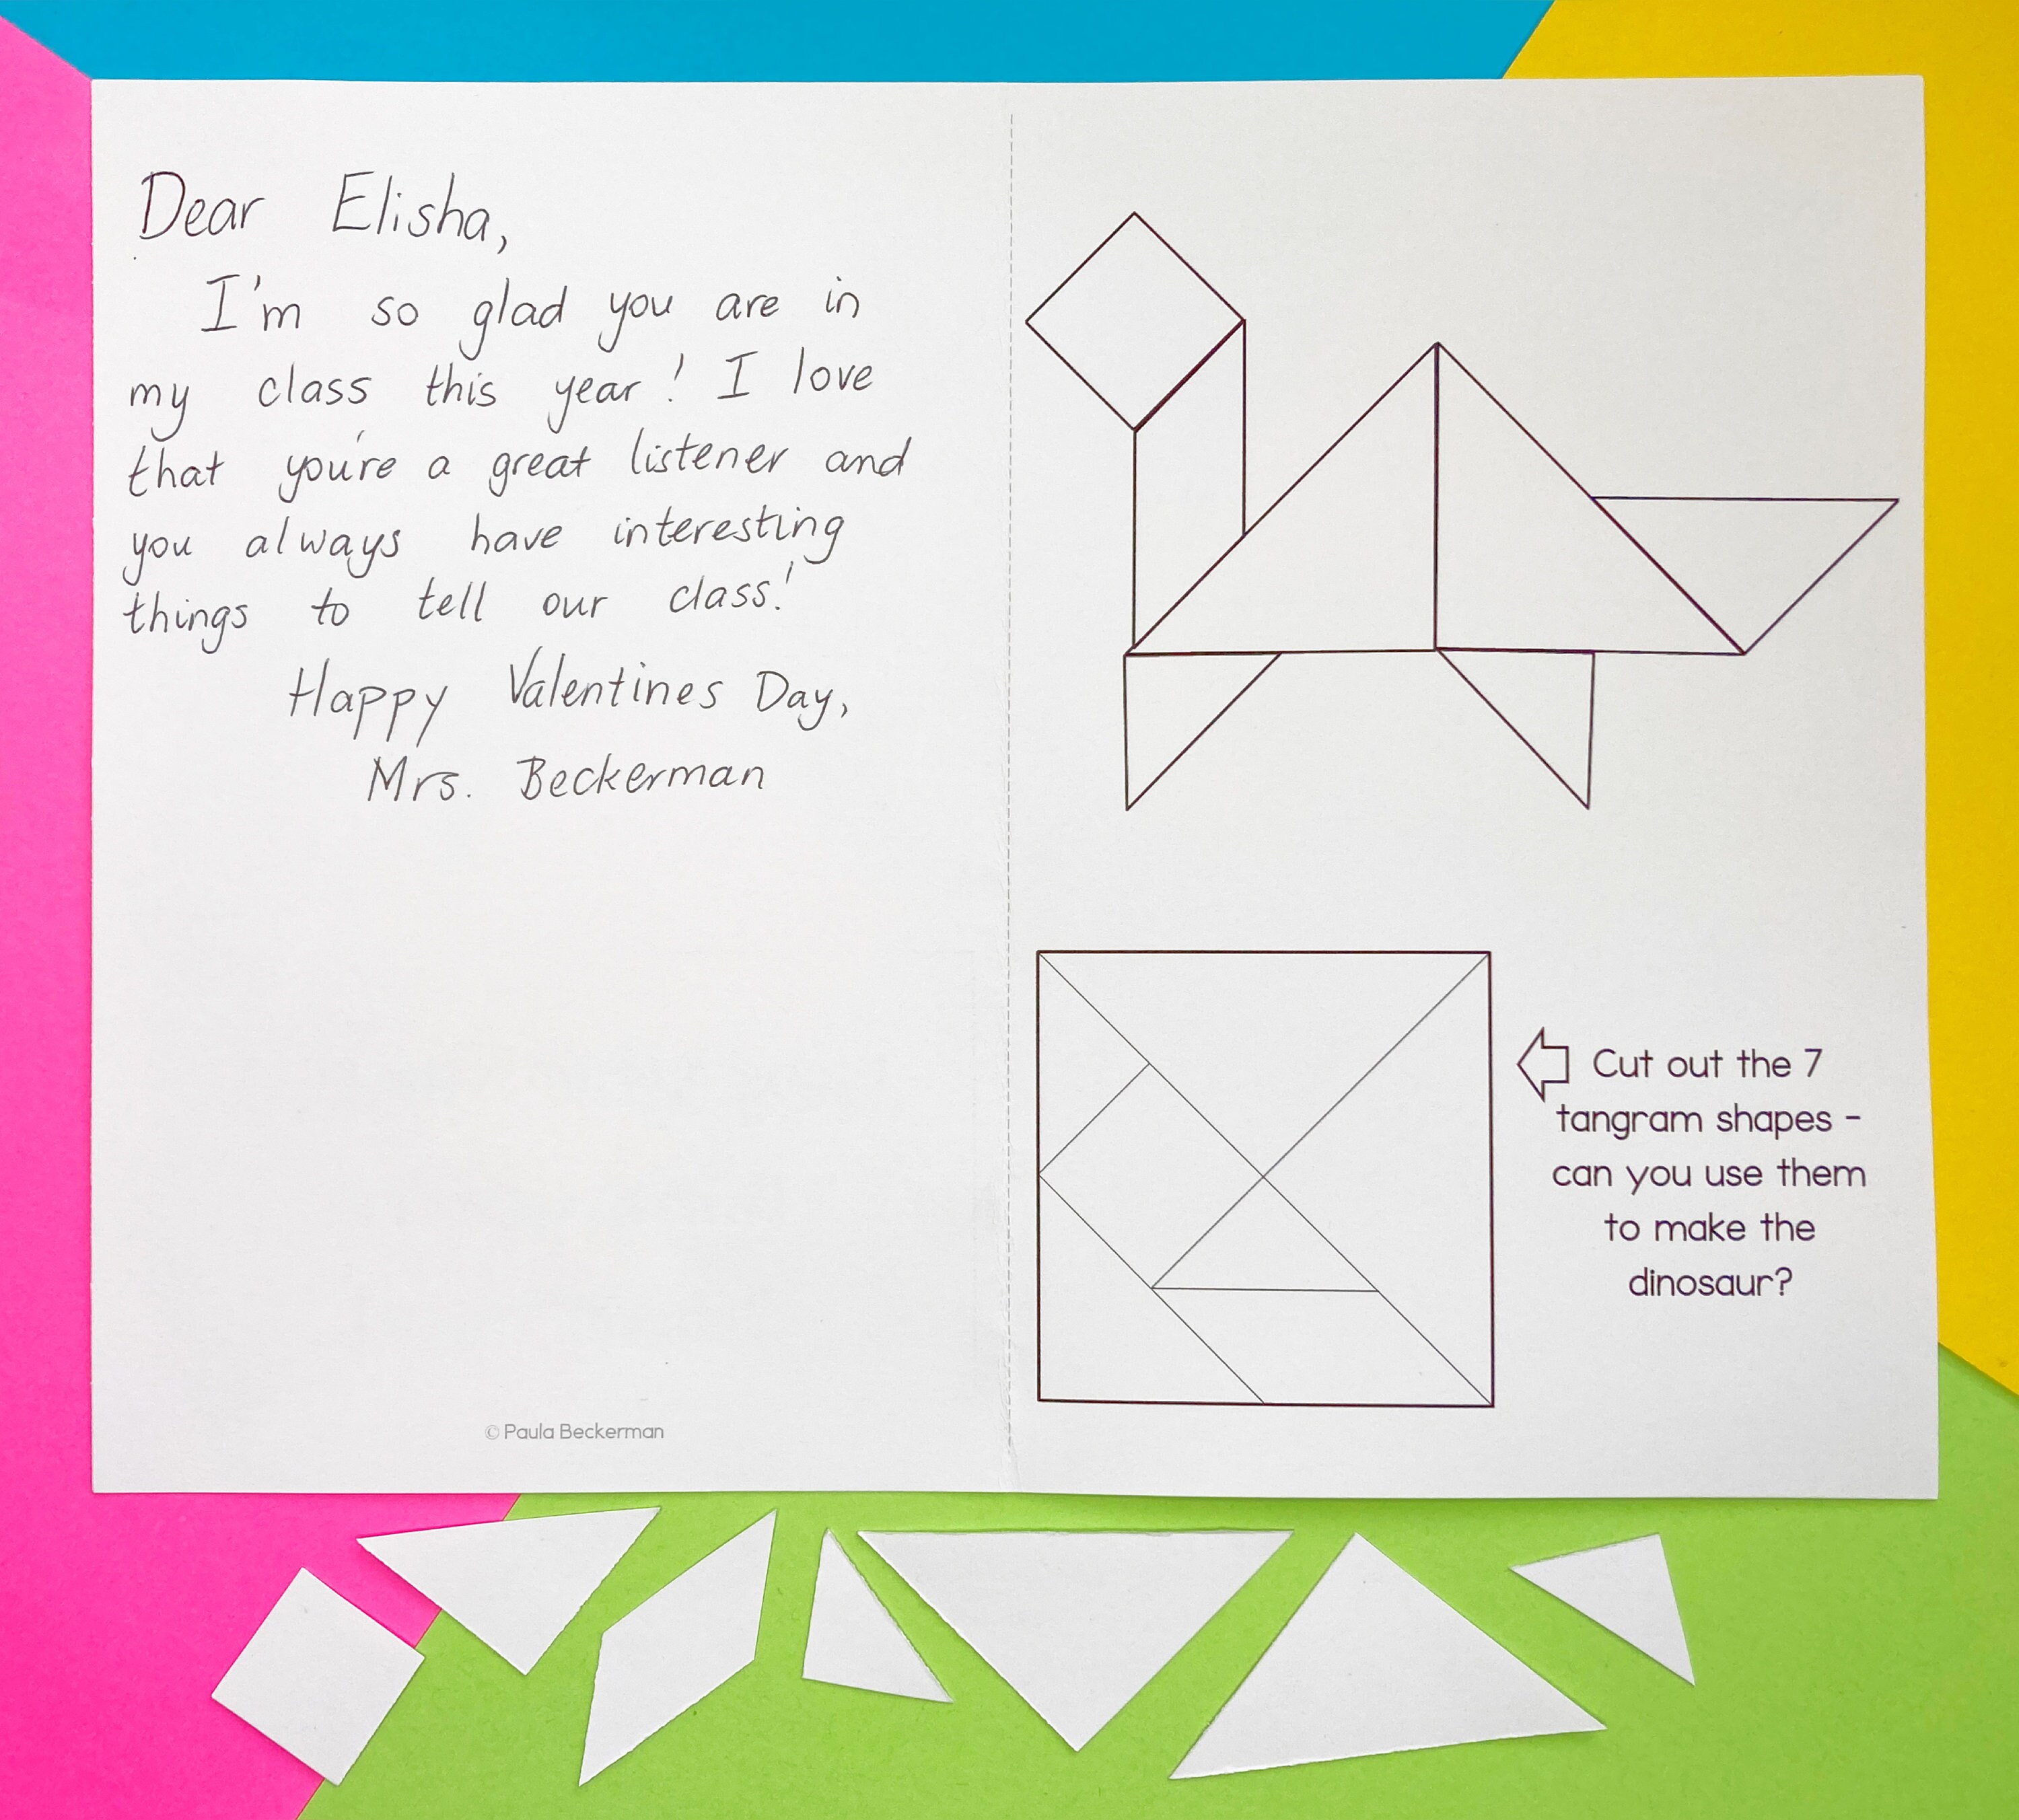 Dear Elisha,
I'm so glad you are in
my class this year! I love
that you're a great listener and
you always have interesting
things to tell our class!
Happy Valentines Day,
Mrs. Beckerman
© Paula Beckerman
Cut out the 7
tangram shapes -
can you use them
to make the
dinosaur?